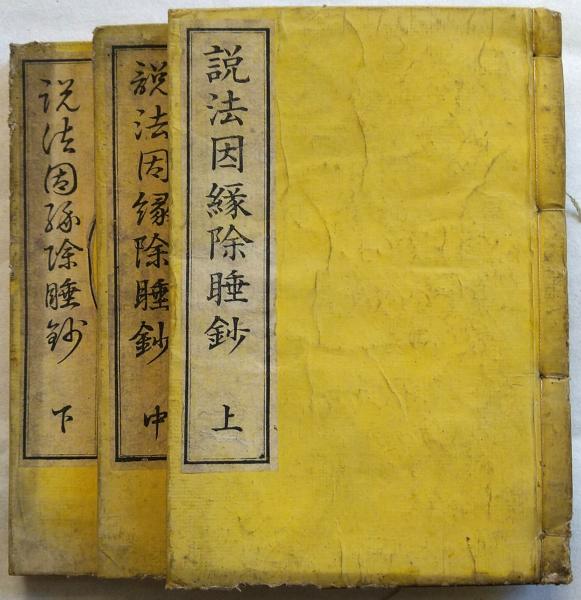 説法因縁除睡鈔 上
説法因縁除睡鈔 中
説法因縁除睡鈔 下